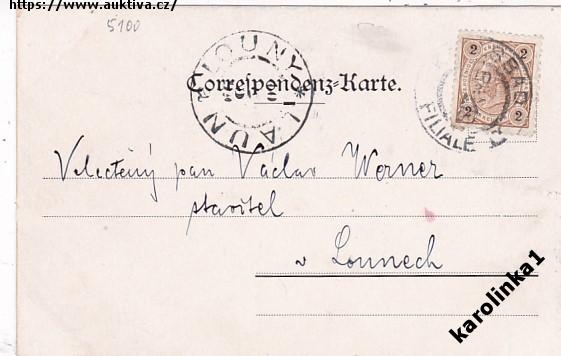 https://www.aukticka.cz/
5100
LOUNY * LAUN *
Correspondenz-Karte.
2 2
2 2
FILIALE
Velectěný pan Václav Werner
stavitel
v Lounech
karolinka1